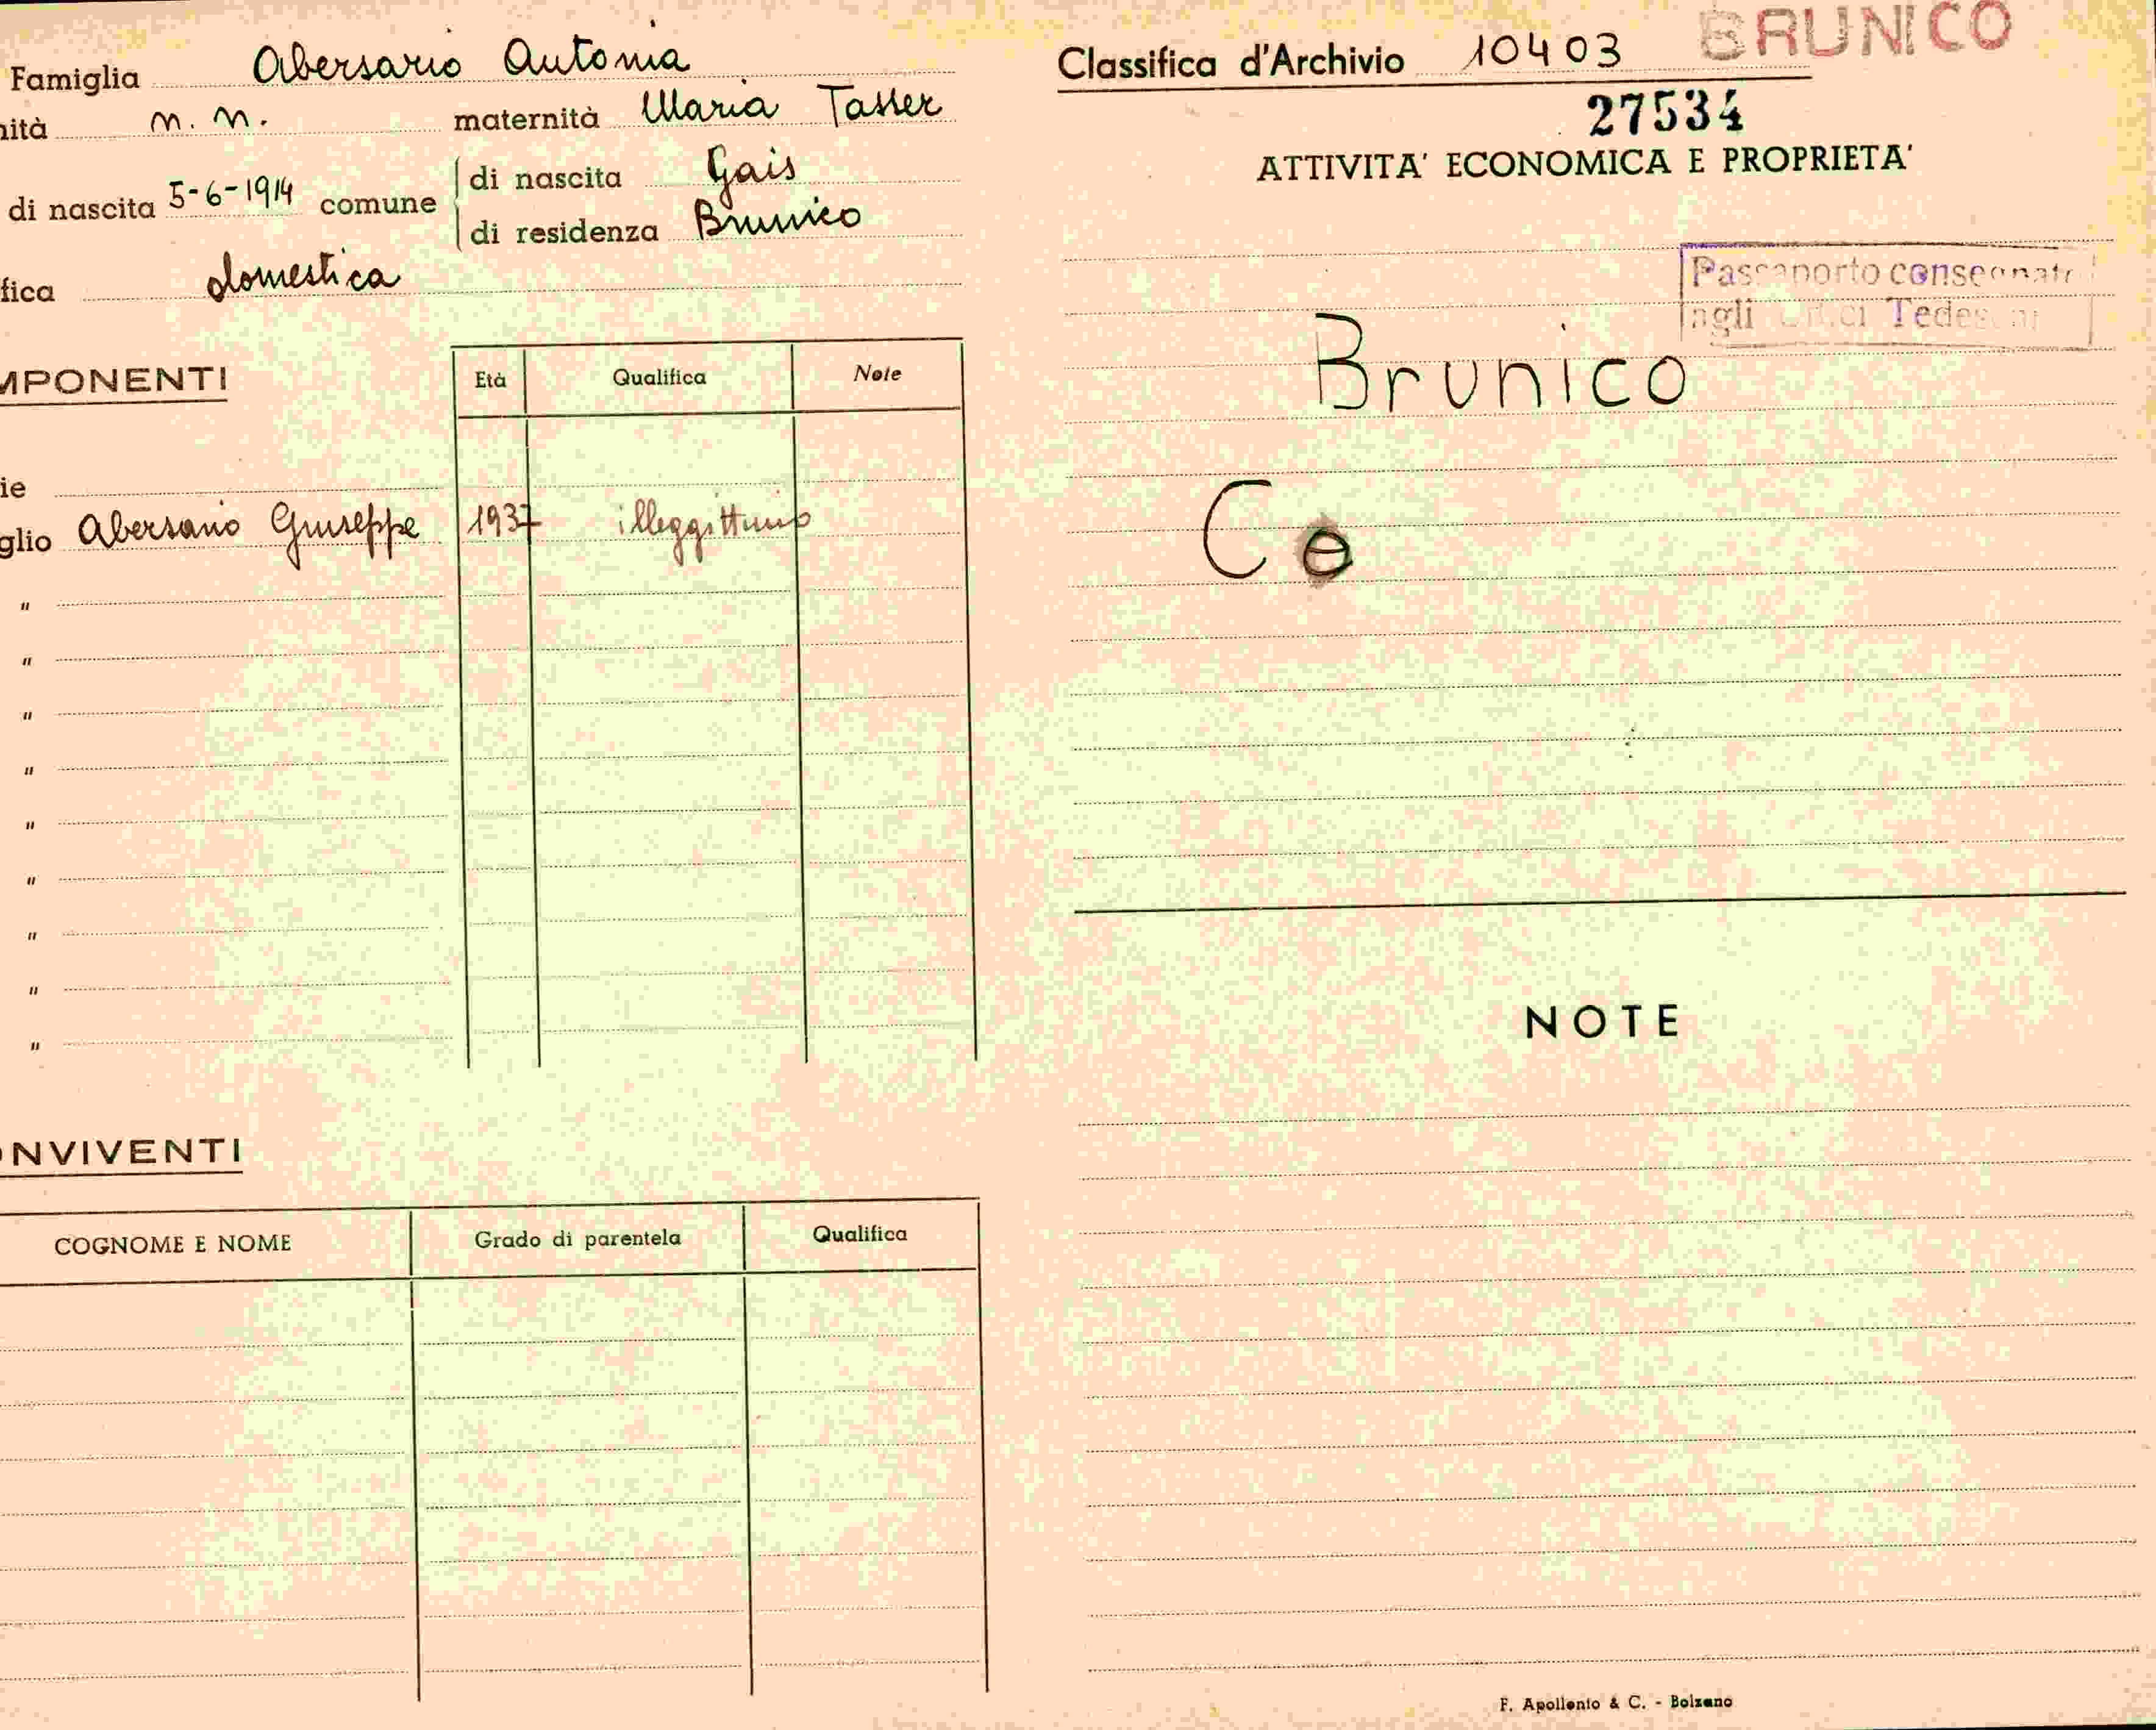 Famiglia Abersario Antonia
nità n. n. maternità Maria Tasser
di nascita 5-6-1914 comune di nascita Gais
di residenza Brunico
fica domestica
MPONENTI
Età Qualifica Note
ie
glio Abersario Giuseppe 1937 illeggittimo
"
"
"
"
"
"
"
"
"
ONVIVENTI
COGNOME E NOME Grado di parentela Qualifica
Classifica d'Archivio 10403 BRUNICO
27534
ATTIVITA' ECONOMICA E PROPRIETA'
Passaporto consegnato
agli Uffici Tedeschi
Brunico
C e
NOTE
F. Apollonio & C. - Bolzano